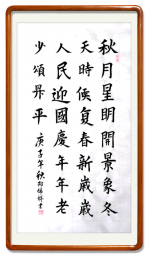 秋月星明開景象冬
天時候复春新嵗嵗
人民迎國慶年年老
少頌昇平 庚子年秋